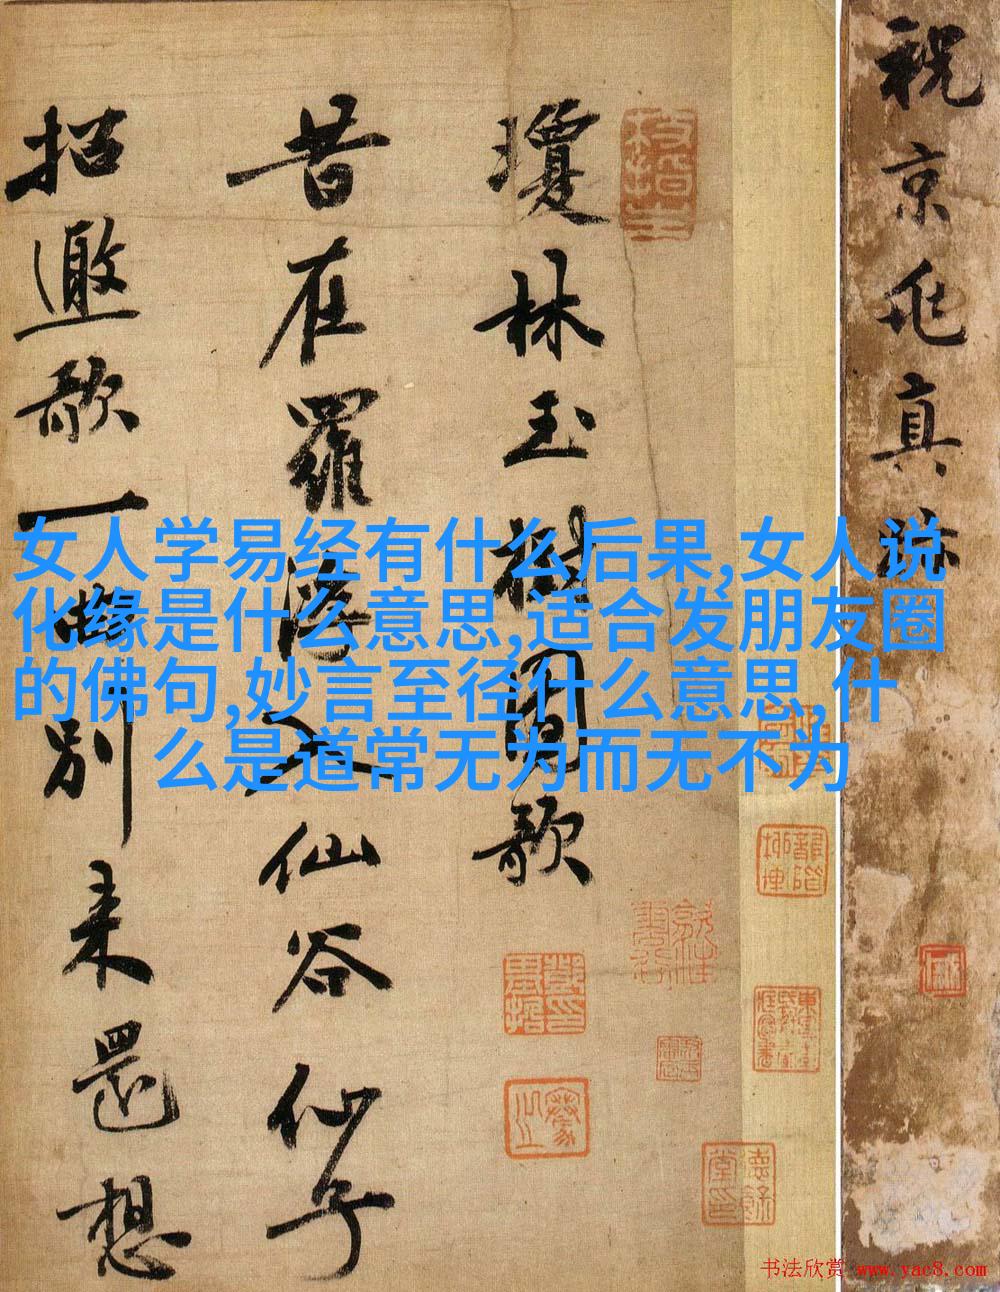 祝京兆真
瓊林玉樹圖歌
昔在羅浮入仙谷仙子
招邀歌一曲別來還想
女人学易经有什么后果,女人说
化缘是什么意思,适合发朋友圈
的佛句,妙言至径什么意思,什
么是道常无为而无不为
书法欣赏 www.yac8.com